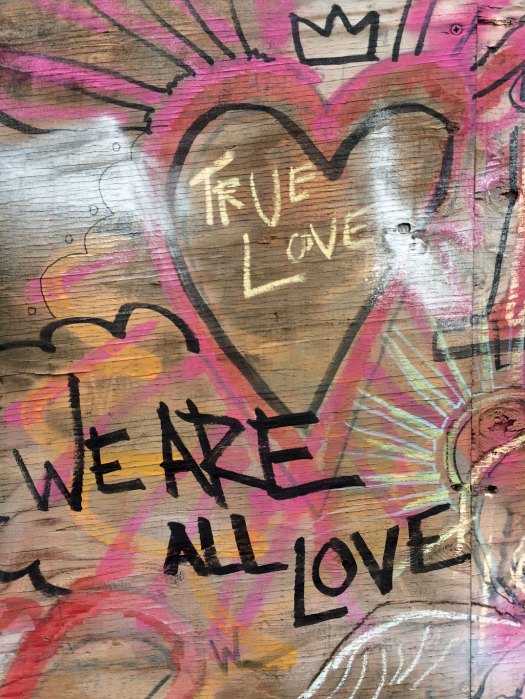 TRUE
LOVE
WE ARE
ALL LOVE